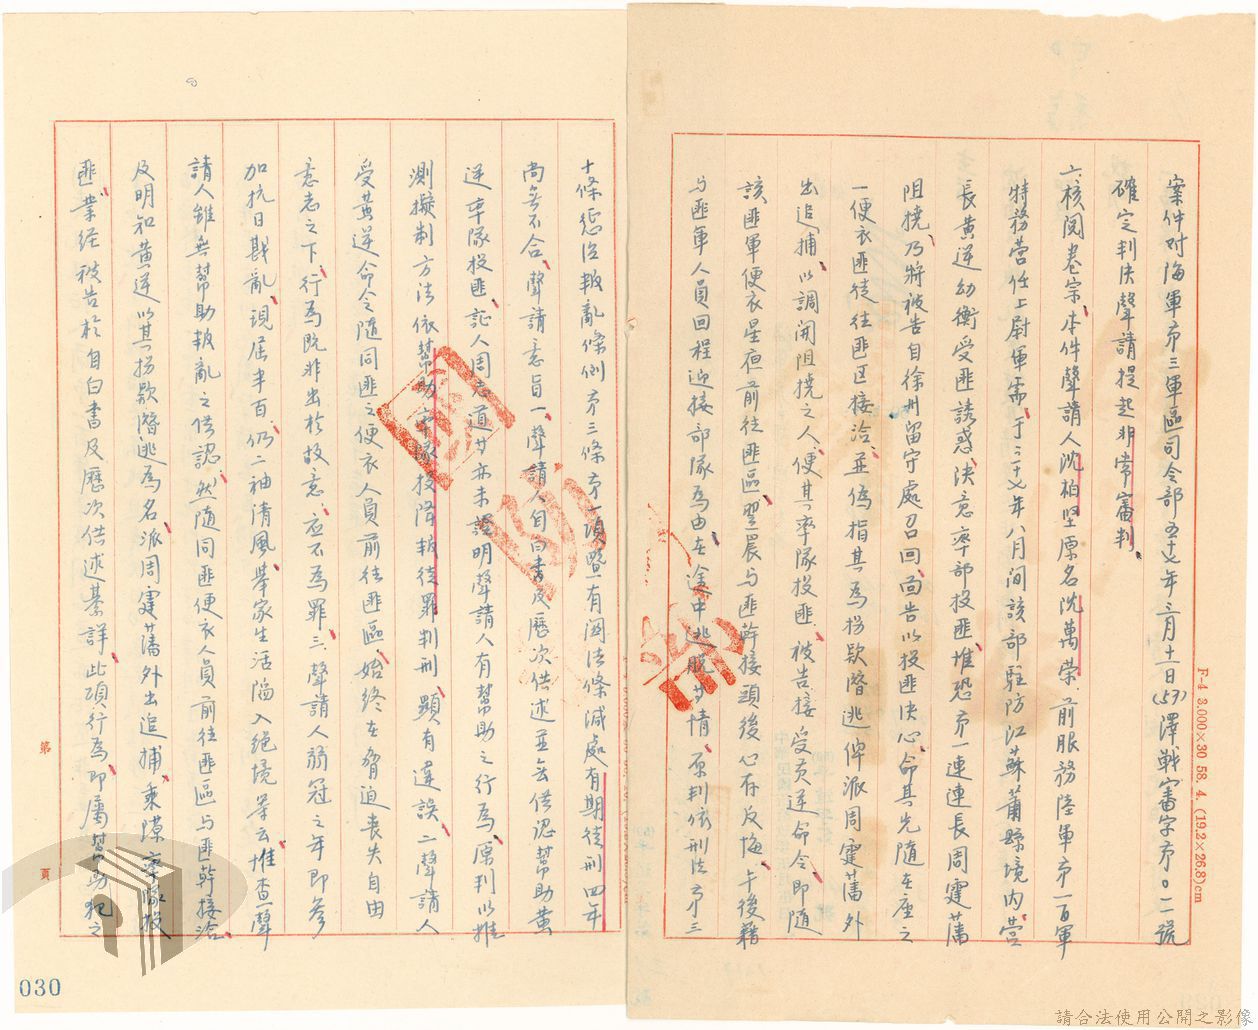 案件对海軍第三軍區司令部五十七年三月十一日(57)澤戰審字第0二號
確定判決聲請提起非常審判
六核閱卷宗、本件聲請人沈柏坚原名沈萬荣、前服務陸軍第一百軍
特務营任上尉軍需、于三十七年八月间該部駐防江苏蕭縣境内、营
長黄逆幼衡受匪誘惑決意率部投匪、惟恐第一連連長周霆藩
阻撓、乃將被告自徐州留守處召回、面告以投匪決心、命其先随在座之
一便衣匪徒往匪区接洽、並偽指其為拐款潛逃俾派周霆藩外
出追捕、以調開阻撓之人、便其率隊投匪、被告接受黄逆命令、即随
該匪軍便衣星夜前往匪區、翌晨与匪幹接頭後心存反悔、午後藉
与匪軍人員回程迎接部隊為由、在途中逃脱 情、原判依刑法第三
十條惩治叛亂條例第三條第一項暨有関法條減處有期徒刑四年
尚無不合、聲請意旨一、聲請人自白書及歷次供述並無供認幫助黄
逆率隊投匪、証人周志道 亦未証明聲請人有幫助之行為、原判以推
測擬制方法依幫助率隊投降叛徒罪判刑、顯有違誤、二聲請人
受黄逆命令随同匪之便衣人員前往匪區、始终在脅迫丧失自由
意志之下、行為既非出於故意、应不為罪、三、聲請人弱冠之年即参
加抗日戡亂、現屆半百、仍二袖清風、舉家生活陷入绝境等云、惟查聲
請人雖無幫助叛亂之供認、然随同匪便衣人員前往匪區与匪幹接洽、
及明知黄逆以其拐款潛逃為名、派周霆藩外出追捕、乘隙率隊投
匪、業经被告於自白書及歷次供述綦詳、此項行為、即屬幫助犯之
F-4 3.000×30 58. 4. (19.2×26.8)cm
第 頁
030
請合法使用公開之影像